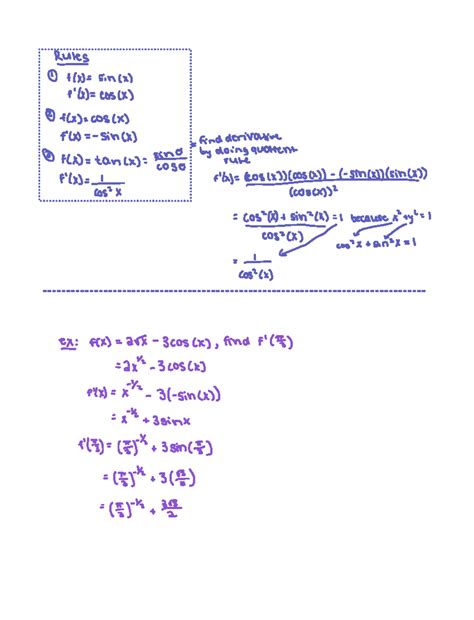 Rules
① f(x) = sin(x)
f'(x) = cos(x)
② f(x) = cos(x)
f'(x) = -sin(x)
③ f(x) = tan(x) = sinθ/cosθ = find derivative by doing quotient rule
f'(x) = 1/cos²x
f'(x) = (cos(x))(cos(x)) - (-sin(x))(sin(x))/(cos(x))²
= cos²(x) + sin²(x)/cos²(x) = 1 because x²+y²=1
cos²x + sin²x = 1
= 1/cos²(x)
ex: f(x) = 2√x - 3cos(x), find f'(π/3)
= 2x^1/2 - 3cos(x)
f'(x) = x^-1/2 - 3(-sin(x))
= x^-1/2 + 3sinx
f'(π/3) = (π/3)^-1/2 + 3sin(π/3)
= (π/3)^-1/2 + 3(√3/2)
= (π/3)^-1/2 + 3√3/2